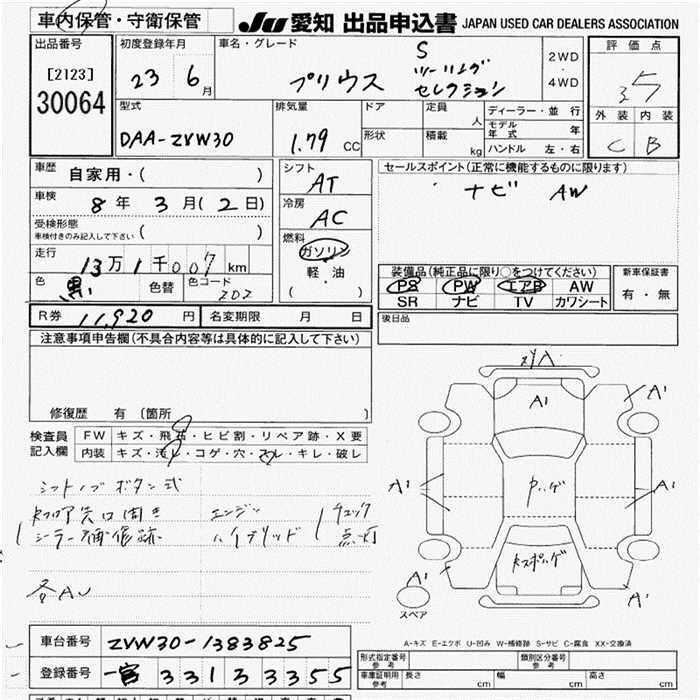 車内保管・守衛保管
JU 愛知 出品申込書 JAPAN USED CAR DEALERS ASSOCIATION
出品番号
[2123]
30064
初度登録年月
23 6月
車名・グレード
プリウス
S
ツーリング
セレクション
2WD
4WD
評価点
3.5
外装 内装
C B
型式
DAA-ZVW30
排気量
1.79 CC
ドア
形状
定員 人
積載 kg
ディーラー・並行
モデル年式 年
ハンドル 左・右
車歴
自家用・( )
車検
8年 3月(2日)
受検形態
車検付きのみ記入して下さい ( )
走行
13万1千007 km
色
黒
色替
色コード
202
シフト
AT
冷房
AC
燃料
ガソリン
軽・油
( )
セールスポイント(正常に機能するものに限ります)
ナビ AW
装備品(純正品に限り○をつけてください)
PS PW エアB AW
SR ナビ TV カワシート
新車保証書
有・無
R券 11,920 円
名変期限 月 日
後日品
注意事項申告欄(不具合内容等は具体的に記入して下さい)
修復歴 有〔箇所 〕
検査員
記入欄
FW キズ・飛石・ヒビ割・リペア跡・X要
内装 キズ・汚レ・コゲ・穴・スレ・キレ・破レ
シフトノブボタン式
シーラー補修跡
エンジン
ハイブリッド
チェック
点灯
各AU
メリA
A1
A1
A1
A1
A1
A1
A1
スペア
A-キズ E-エクボ U-凹み W-補修跡 S-サビ C-腐食 XX-交換済
車台番号 ZVW30-1383825
登録番号 一宮 331 3 3355
形式指定番号
参考
類別区分番号
参考
車庫証明用
参考
長さ cm
幅 cm
高さ cm